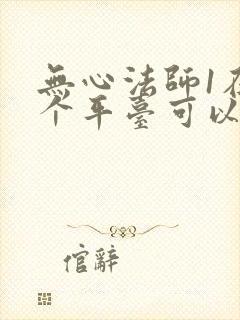 無心法師1在
个平臺可以
倌辭